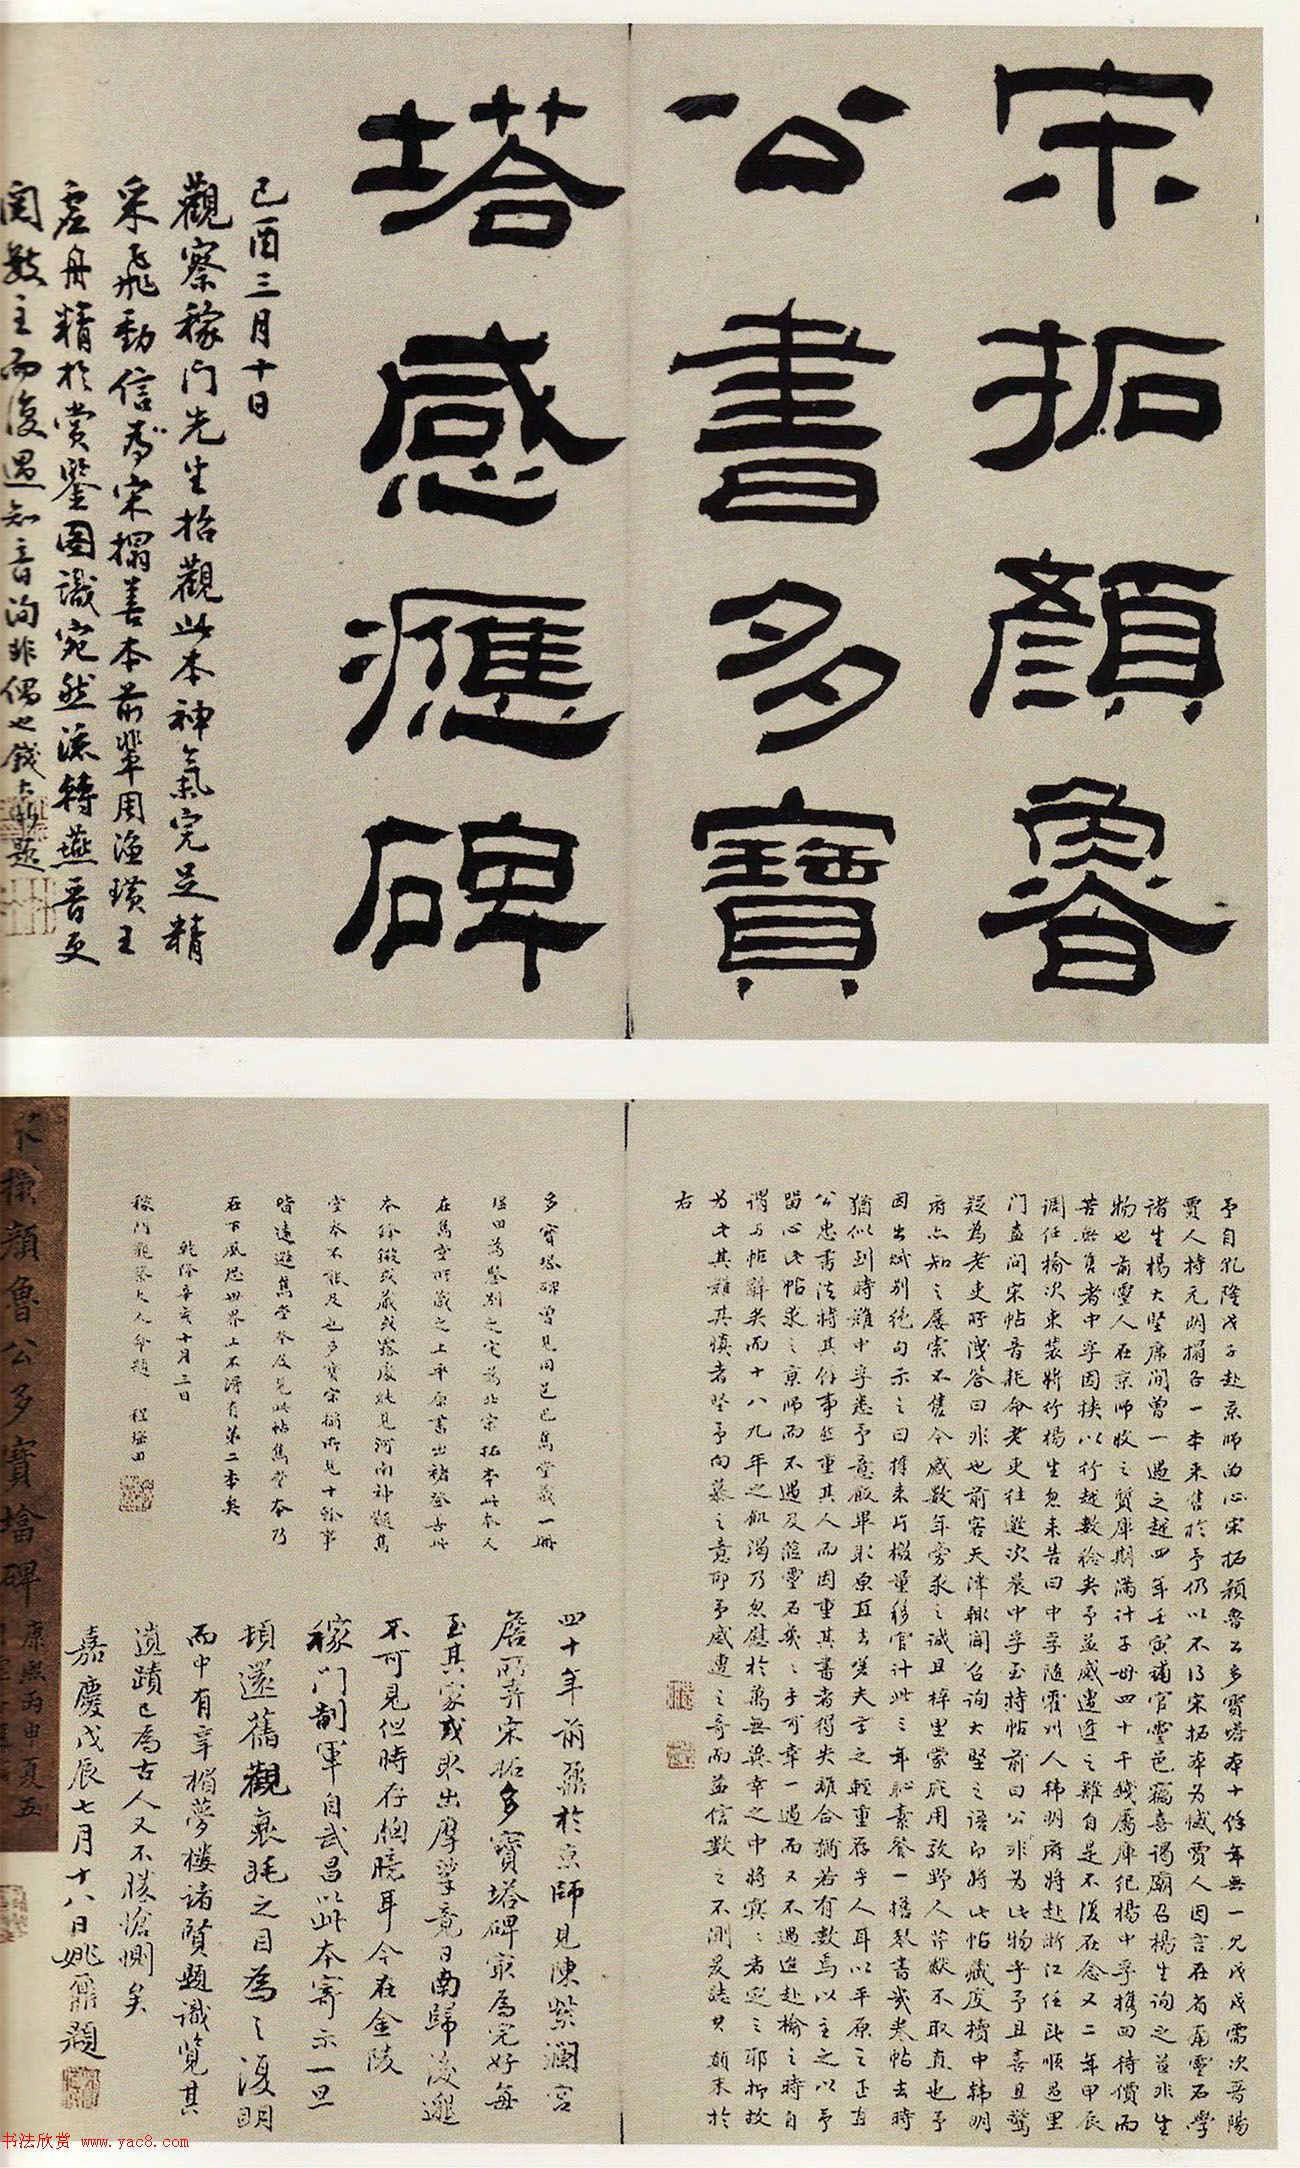 宋拓顏魯
公書多寶
塔感應碑
己酉三月十日
觀察稼門先生招觀此本神氣完足精
采飛動信為宋搨善本前輩周漁璜王
虛舟精於賞鑒圖識宛然流轉燕晉更
閱數主而復遇知音洵非偶也錢大昕題
予自乾隆戊子赴京師留心宋拓顏魯公多寶塔本十餘年無一見戊戌需次晉陽
賈人持元明搨各一本來售於予仍以不得宋拓本為憾賈人因言在省南靈石學
諸生楊大堅席間曾一遇之越四年壬寅補官靈邑竊喜謁廟召楊生詢之並非生
物也前靈人在京師收之質庫期滿計子母四十千錢屬庫紀楊中孚携回待價而
苦無售者中孚因挾以行越數稔矣予益感遭逢之難自是不復在念又二年甲辰
調任榆次束裝將行楊生忽来告曰中孚隨霍州人韩明府將赴浙江任路順邑里
門盍問宋帖音耗命老吏往邀次晨中孚至持帖前曰公非為此物乎予且喜且驚
疑為老吏所洩答曰非也前客天津聞公詢大堅之語即將此帖藏度櫝中韩明
府亦知之屢索不售今感數年旁求之誠且梓里蒙庇用效野人芹獻不取直也予
因出贐别絕句示之曰
公忠書法將其餘事然重其人而因重其書者得失離合猶若有數焉以主之以予
留心此帖求之京師而不遇及蒞靈石幾幾乎可幸一遇而又不遇迨赴榆之時自
謂与帖辭矣而十八九年之飢渴乃忽慰於萬無冀幸之中將冥冥者定之耶抑故
為此其難其慎者堅予向慕之意耶予感遭之奇而益信數之不測爰誌其顛末於
右
多寶塔碑曾見同邑巴雋堂藏一冊
在雋堂所藏之上平原書出褚登善此
堂本不能及也多寶宋搨所見十餘事
皆遠遜雋堂本及見此帖雋堂本乃
在下風恐世界上不得有第二本矣
乾隆辛亥十月三日
稼門觀察大人命題 程瑤田
四十年前鼐於京師見陳紫瀾宮
詹所弆宋拓多寶塔碑最為完好每
至其家或求出摩挲竟日南歸後邈
不可見但時存胸臆耳今在金陵
稼門制軍自武昌以此本寄示一旦
頓還舊觀衰眊之目為之復明
而中有辛楣夢樓諸賢題識覽其
遺蹟已為古人又不勝愴惻矣
嘉慶戊辰七月十八日姚鼐題
宋搨顏魯公多寶塔碑
康熙丙申夏五
书法欣赏 www.yac8.com